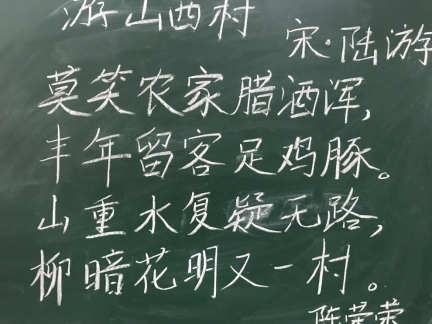 游山西村
宋·陆游
莫笑农家腊酒浑,
丰年留客足鸡豚。
山重水复疑无路,
柳暗花明又一村。
陈荣荣